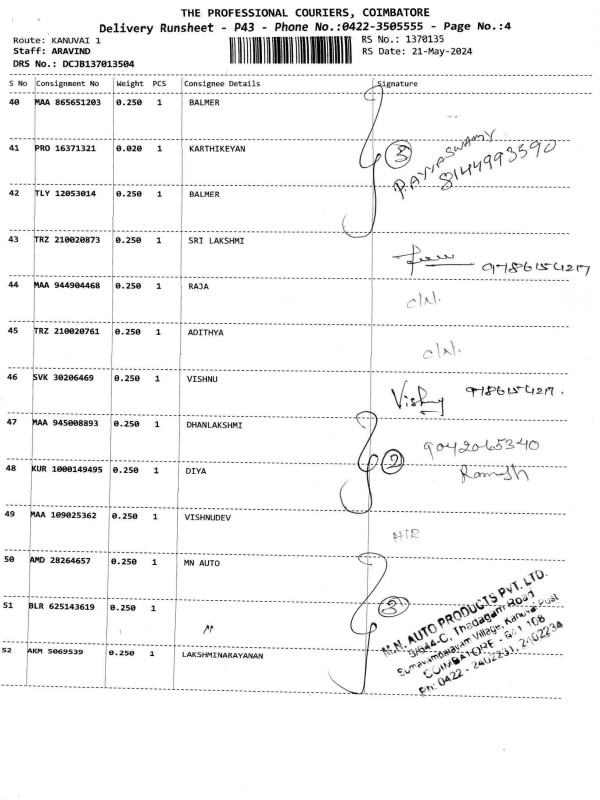 THE PROFESSIONAL COURIERS, COIMBATORE
Delivery Runsheet - P43 - Phone No.:0422-3505555 - Page No.:4
Route: KANUVAI 1
RS No.: 1370135
Staff: ARAVIND
RS Date: 21-May-2024
DRS No.: DCJB137013504
S No Consignment No Weight PCS Consignee Details Signature
40 MAA 865651203 0.250 1 BALMER
41 PRO 16371321 0.020 1 KARTHIKEYAN
3 P. AYYASWAMY
8144993590
42 TLY 12053014 0.250 1 BALMER
43 TRZ 210020873 0.250 1 SRI LAKSHMI
9786154217
44 MAA 944904468 0.250 1 RAJA
C/N.
45 TRZ 210020761 0.250 1 ADITHYA
C/N.
46 SVK 30206469 0.250 1 VISHNU
Vishnu 9786154217.
47 MAA 945008893 0.250 1 DHANLAKSHMI
9042065340
48 KUR 1000149495 0.250 1 DIYA 2
Ramesh
49 MAA 109025362 0.250 1 VISHNUDEV
50 AMD 28264657 0.250 1 MN AUTO
51 BLR 625143619 0.250 1 3
"
52 AKM 5069539 0.250 1 LAKSHMINARAYANAN
M.N. AUTO PRODUCTS PVT. LTD.
5/644-C, Thadagam Road
Somayampalayam Village, Kanuvai Post
COIMBATORE - 641 108
Ph: 0422 - 2402231, 2402234